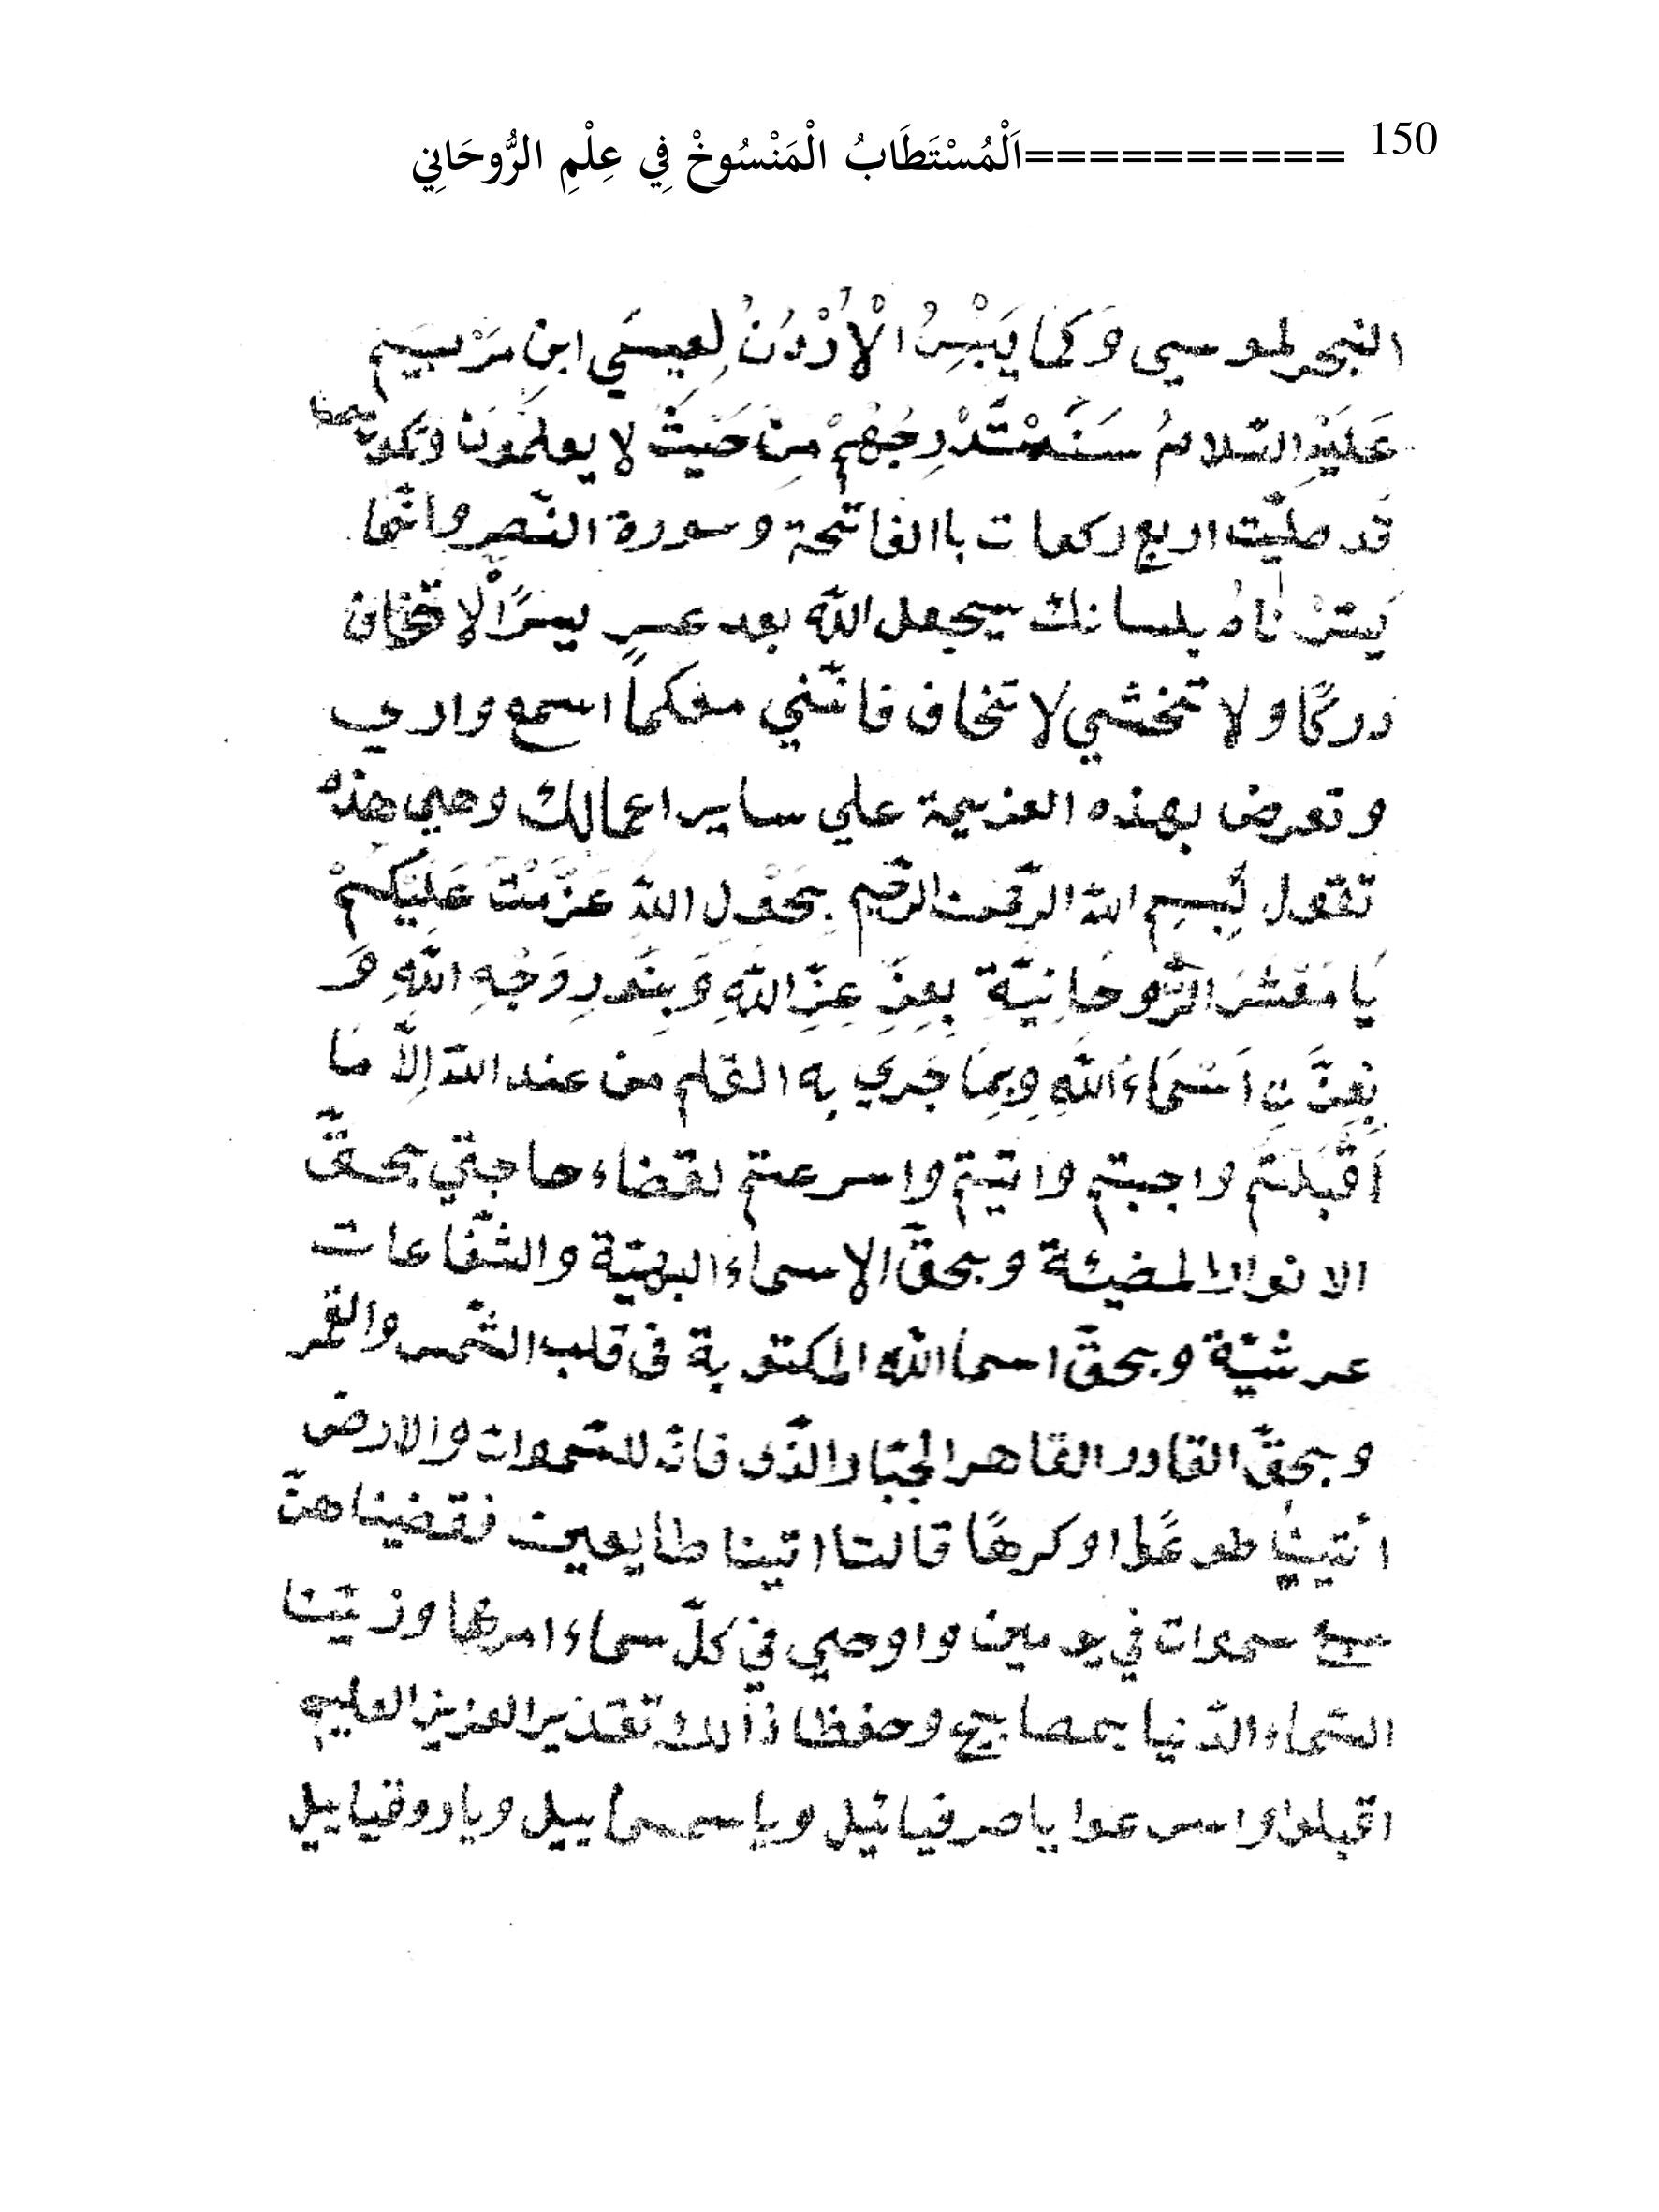 150 ==========اَلْمُسْتَطَابُ الْمَنْسُوخْ فِي عِلْمِ الرُّوحَانِي
البحر لموسي وَكما يَبْسِ الْأرْدُنُ لِعِيسَي ابنِ مَرْيَم
عَلَيْهِ السّلامُ سَنَسْتَدْرِجُهُمْ مِنْ حَيْثُ لا يعلَمُونَ وتكون
قد صليّت اربع ركعات باالفاتحة وسورة النّصر وانّما
يَسّرْنَاهُ بلسانك سيجعل الله بعد عسرٍ يسرًا لْا تخاف
دركًا ولا تخشي لا تخاف فانّني معكماً اسمع واري
وتعرض بهذه العزيمة علي ساير اعمالك وهي هذه
تقول بِسم الله الرّحمن الرّحيم بِحَوْلِ اللهَ عَزّمْتَ عَلَيْكُمْ
يَا مَعْشَرَ الرُّوحَانِيَّةِ بِعِزِّ عِزِّ اللهِ وَبِنُورِ وَجْهِ اللهِ وَ
بِعِزَّتِ اَسْمَاءَ اللهِ وَبِمَا جَري به القلم من عند اللهَ اِلاَّ مَا
اَقْبَلْتُم واجبتم واتيتم واسرعتم لقضاء حاجتي بحقّ
الانوار المضيئة وبحقّ الاسماء البهيّة والشّفاعات
عرشيّة وبحقّ اسما الله المكتوبة في قلب الشّمس والقمر
وبحقّ القادر القاهر الجبّار الذّي قال للسّموات والارض
ائتيا طوعًا او كرهًا قالتا اتينا طايعين فقضيناهنّ
سبع سموات في يومين واوحي في كلّ سماء امرها وزيّنا
السّماء الدّنيا بمصابيح وحفظا ذالك تقدير العزيز العليم
اقبلوا واسرعوا ياصرفيائيل وياسمسماييل وياروقياييل